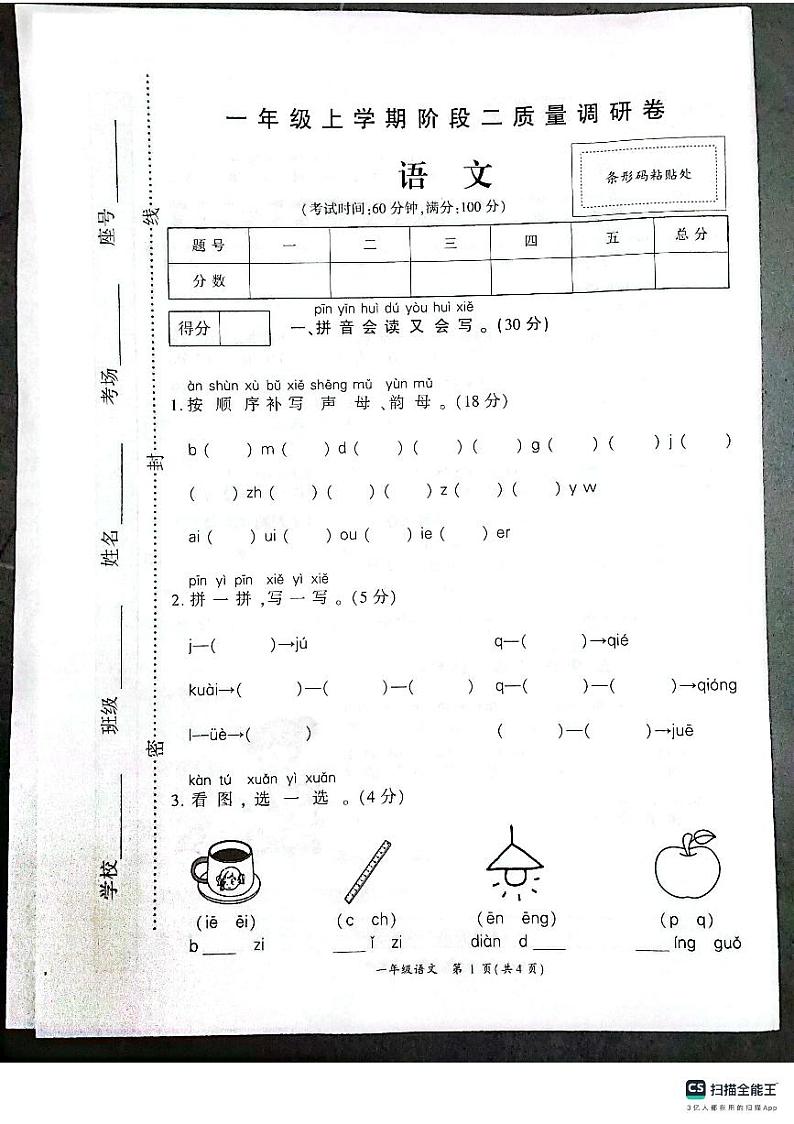 一年级上学期阶段二质量调研卷
语 文
条形码粘贴处
(考试时间:60分钟,满分:100分)
题号 一 二 三 四 五 总分
分数
得分
pīn yīn huì dú yòu huì xiě
一、拼音会读又会写。(30分)
àn shùn xù bǔ xiě shēng mǔ yùn mǔ
1.按顺序补写声母、韵母。(18分)
b ( ) m ( ) d ( ) ( ) ( ) g ( ) ( ) j ( )
( ) zh ( ) ( ) ( ) z ( ) ( ) y w
ai ( ) ui ( ) ou ( ) ie ( ) er
pīn yì pīn xiě yì xiě
2.拼一拼,写一写。(5分)
j—( )→jú q—( )→qié
kuài→( )—( )—( ) q—( )—( )→qióng
l—üè→( ) ( )—( )→juē
kàn tú xuǎn yì xuǎn
3.看图,选一选。(4分)
(iē ēi) (c ch) (ēn ēng) (p q)
b____ zi ____ǐ zi diàn d____ ____íng guǒ
一年级语文 第1页(共4页)
学校 班级 姓名 考场 座号
密 封 线
CS 扫描全能王
3亿人都在用的扫描App